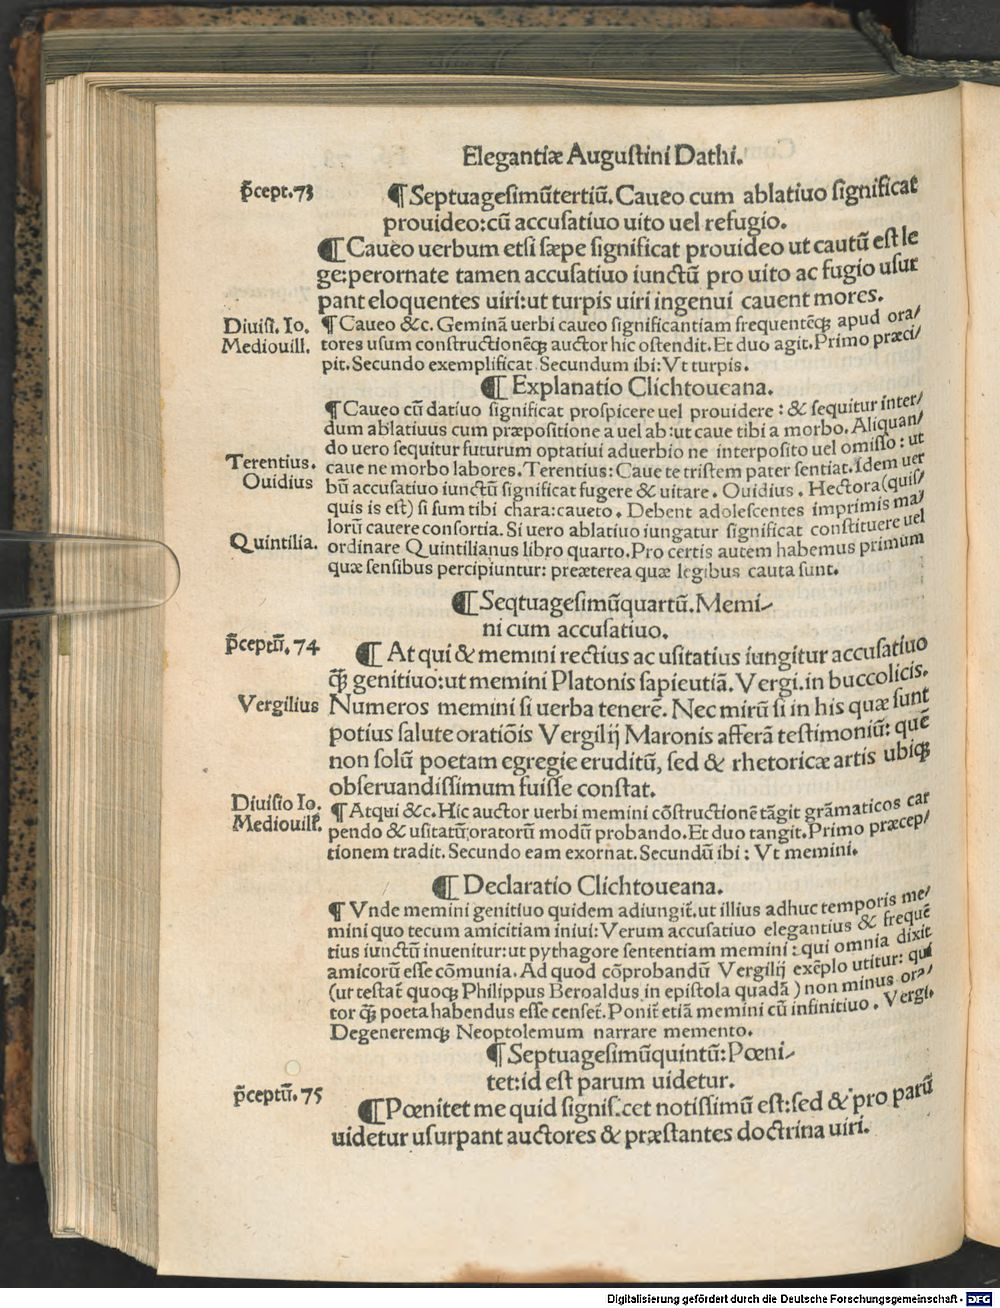 Elegantiæ Augustini Dathi.
p̄cept.73
¶ Septuagesimū tertiū. Caueo cum ablatiuo significat
prouideo: cū accusatiuo uito uel refugio.
¶ Caueo uerbum etsi sæpe significat prouideo ut cautū est le
ge: perornate tamen accusatiuo iunctū pro uito ac fugio usur
pant eloquentes uiri: ut turpis uiri ingenui cauent mores.
Diuisi. Io.
Mediouill.
¶ Caueo &c. Geminā uerbi caueo significantiam frequentēqꝫ apud ora/
tores usum constructionēqꝫ auctor hic ostendit. Et duo agit. Primo præci/
pit. Secundo exemplificat Secundum ibi: Vt turpis.
¶ Explanatio Clichtoueana.
¶ Caueo cū datiuo significat prospicere uel prouidere: & sequitur inter/
dum ablatiuus cum præpositione a uel ab: ut caue tibi a morbo. Aliquan/
do uero sequitur futurum optatiui aduerbio ne interposito uel omisso: ut
Terentius.
caue ne morbo labores. Terentius: Caue te tristem pater sentiat. Idem uer
Ouidius
bū accusatiuo iunctū significat fugere & uitare. Ouidius. Hectora (quis/
quis is est) si sum tibi chara: caueto. Debent adolescentes imprimis ma/
lorū cauere consortia. Si uero ablatiuo iungatur significat constituere uel
Quintilia.
ordinare Quintilianus libro quarto. Pro certis autem habemus primum
quæ sensibus percipiuntur: preæterea quæ legibus cauta sunt.
¶ Seqtuagesimū quartū. Memi-
ni cum accusatiuo.
p̄ceptū. 74
¶ At qui & memini rectius ac usitatius iungitur accusatiuo
q̄ꝫ genitiuo: ut memini Platonis sapieutiā. Vergi. in buccolicis.
Vergilius
Numeros memini si uerba tenerē. Nec mirū si in his quæ sunt
potius salute oratiōis Vergilij Maronis afferā testimoniū: quē
non solū poetam egregie eruditū, sed & rhetoricæ artis ubiqꝫ
obseruandissimum fuisse constat.
Diuisio Io.
Mediouill.
¶ Atqui &c. Hic auctor uerbi memini cōstructionē tāgit grāmaticos car
pendo & usitatū oratorū modū probando. Et duo tangit. Primo præcep/
tionem tradit. Secundo eam exornat. Secundū ibi: Vt memini.
¶ Declaratio Clichtoueana.
¶ Vnde memini genitiuo quidem adiungit̄. ut illius adhuc temporis me/
mini quo tecum amicitiam iniui: Verum accusatiuo elegantius & frequē
tius iunctū inuenitur: ut pythagore sententiam memini: qui omnia dixit
amicorū esse cōmunia. Ad quod cōprobandū Vergilij exēplo utitur: qui
(ut testat̄ quoqꝫ Philippus Beroaldus in epistola quadā) non minus ora/
tor q̄ꝫ poeta habendus esse censet̄. Ponit̄ etiā memini cū infinitiuo. Vergi.
Degeneremqꝫ Neoptolemum narrare memento.
¶ Septuagesimū quintū: Pœni-
tet: id est parum uidetur.
p̄ceptū. 75
¶ Pœnitet me quid signif.cet notissimū est: sed & pro parū
uidetur usurpant auctores & præstantes doctrina uiri.
Digitalisierung gefördert durch die Deutsche Forschungsgemeinschaft - DFG